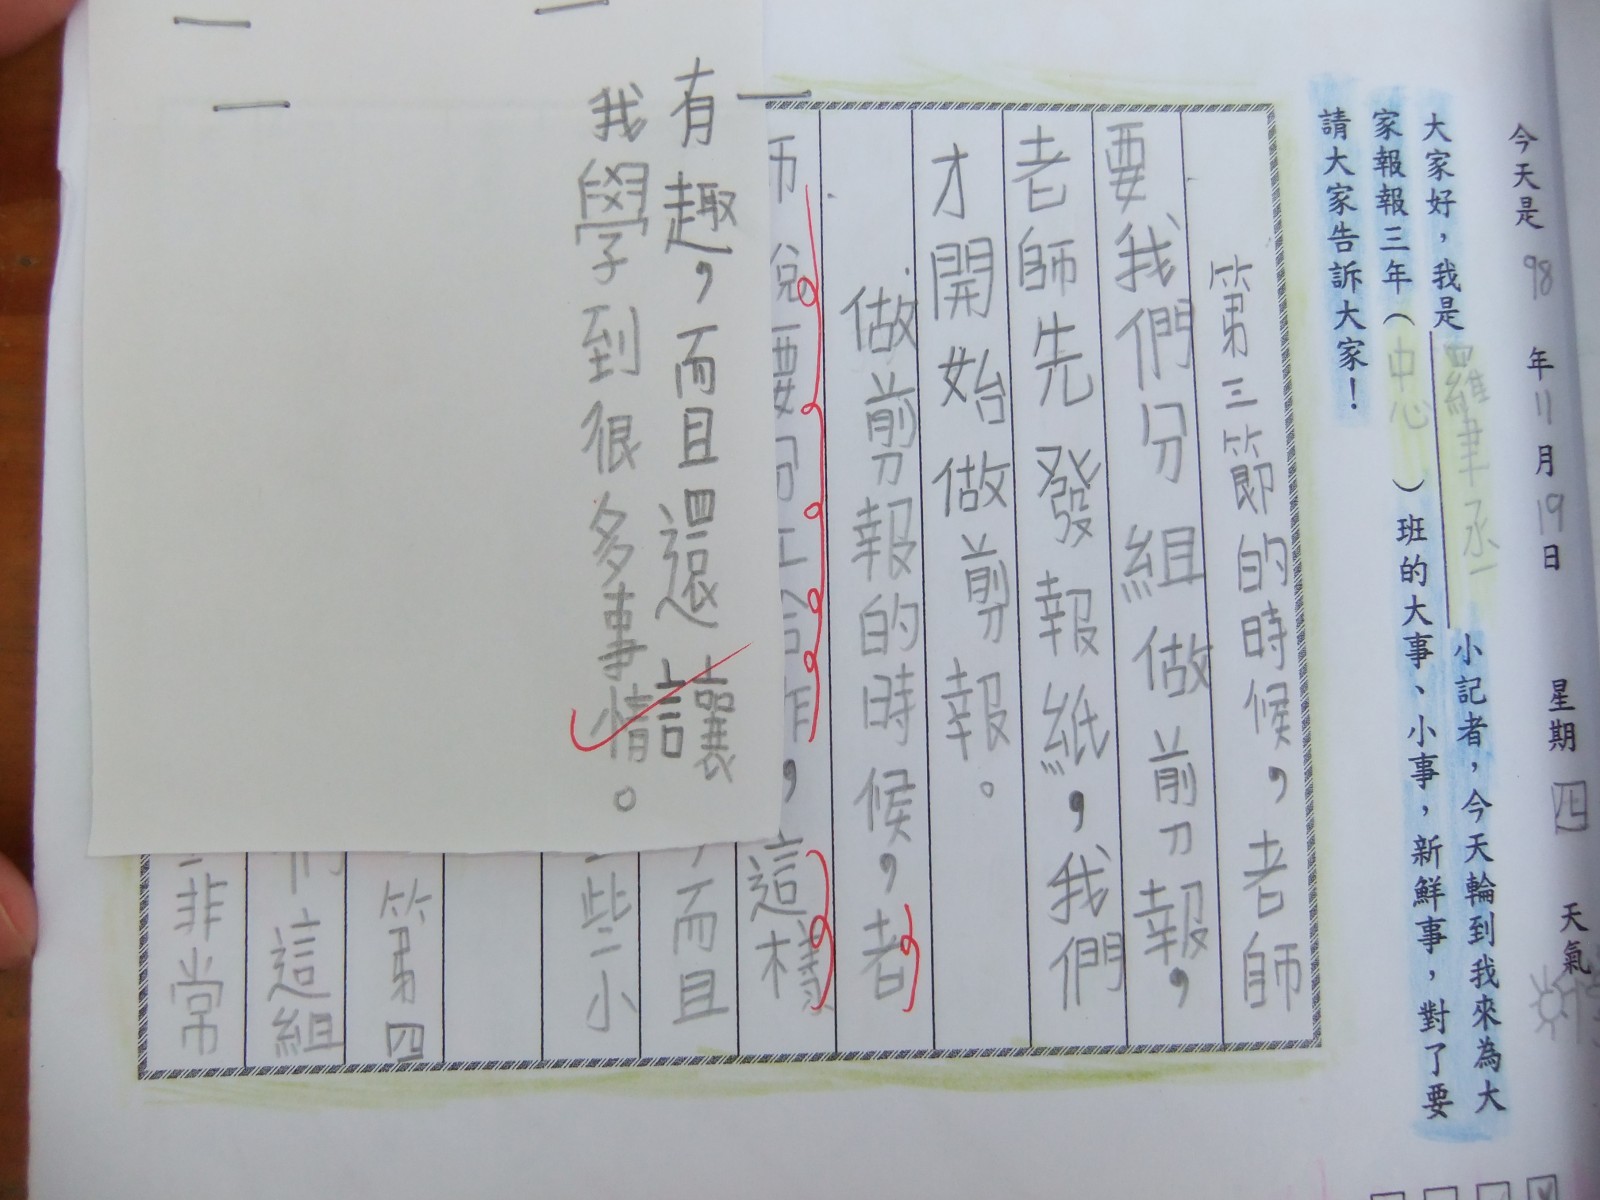 今天是 98 年 11 月 19 日 星期 四 天氣
大家好，我是羅聿丞小記者，今天輪到我來為大
家報報三年（中心）班的大事、小事，新鮮事，對了要
請大家告訴大家！
第三節的時候，老師
要我們分組做剪報，
老師先發報紙，我們
才開始做剪報。
做剪報的時候，老
師說要分工合作，這樣
，而且
些小
第四
們這組
非常
有趣，而且還讓
我學到很多事情。